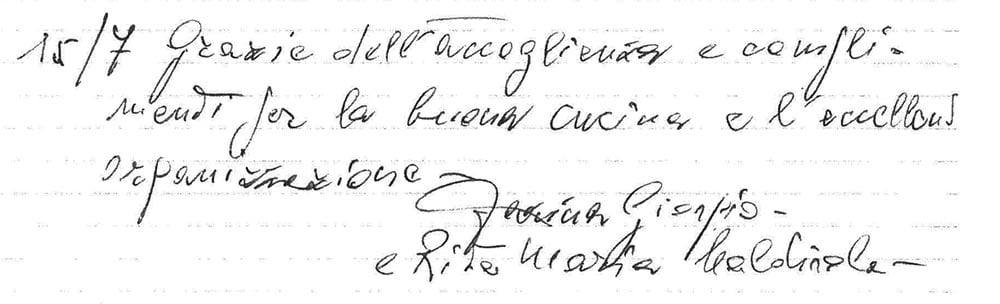 15/7 Grazie dell'accoglienza e compli-
menti per la buona cucina e l'eccellent
organizzazione
Giorgio -
e Rita Maria